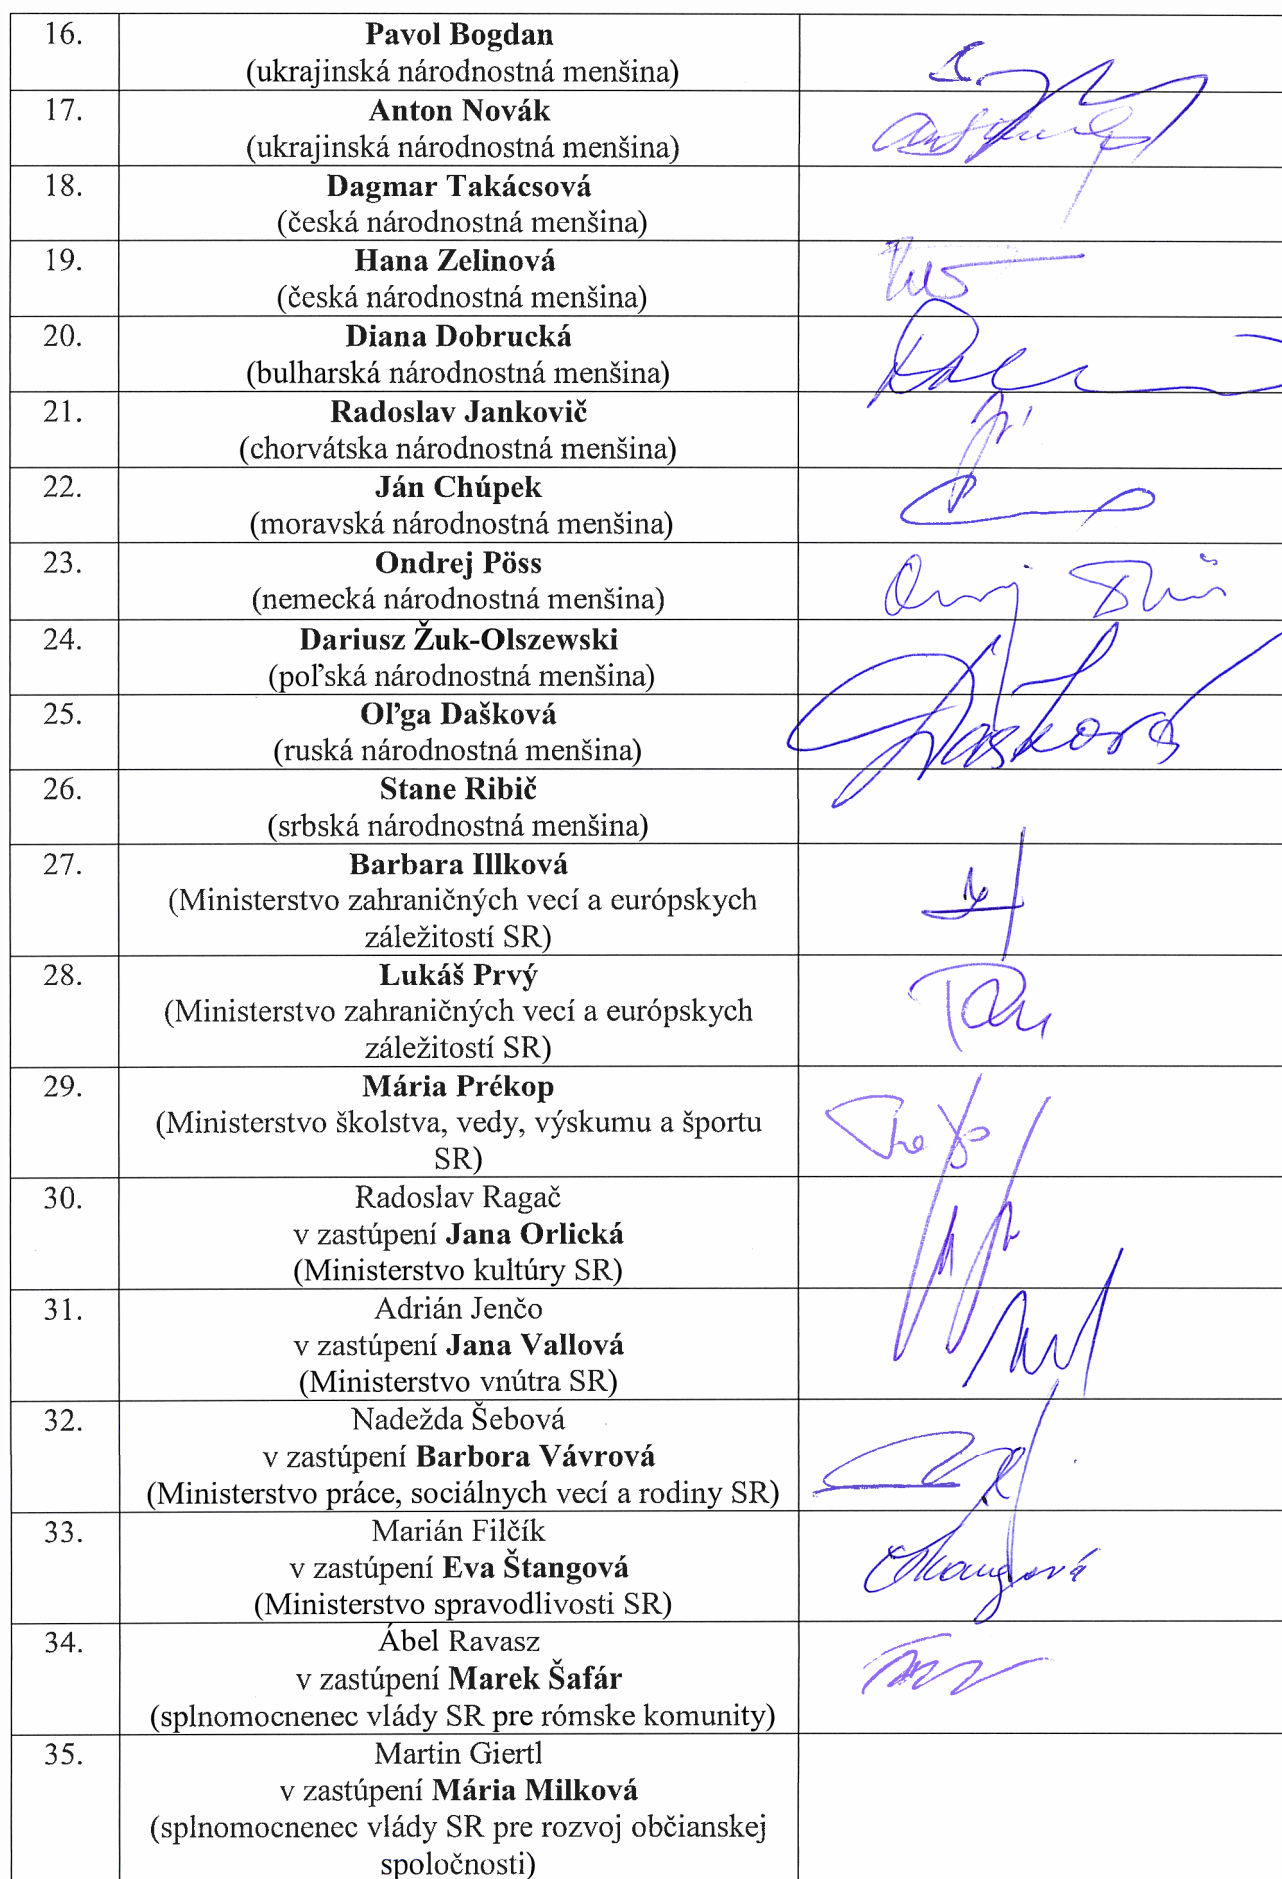 16. Pavol Bogdan
(ukrajinská národnostná menšina)
17. Anton Novák
(ukrajinská národnostná menšina)
18. Dagmar Takácsová
(česká národnostná menšina)
19. Hana Zelinová
(česká národnostná menšina)
20. Diana Dobrucká
(bulharská národnostná menšina)
21. Radoslav Jankovič
(chorvátska národnostná menšina)
22. Ján Chúpek
(moravská národnostná menšina)
23. Ondrej Pöss
(nemecká národnostná menšina)
24. Dariusz Žuk-Olszewski
(poľská národnostná menšina)
25. Oľga Dašková
(ruská národnostná menšina)
Dašková
26. Stane Ribič
(srbská národnostná menšina)
27. Barbara Illková
(Ministerstvo zahraničných vecí a európskych
záležitostí SR)
28. Lukáš Prvý
(Ministerstvo zahraničných vecí a európskych
záležitostí SR)
29. Mária Prékop
(Ministerstvo školstva, vedy, výskumu a športu
SR)
30. Radoslav Ragač
v zastúpení Jana Orlická
(Ministerstvo kultúry SR)
31. Adrián Jenčo
v zastúpení Jana Vallová
(Ministerstvo vnútra SR)
32. Nadežda Šebová
v zastúpení Barbora Vávrová
(Ministerstvo práce, sociálnych vecí a rodiny SR)
33. Marián Filčík
v zastúpení Eva Štangová
(Ministerstvo spravodlivosti SR)
34. Ábel Ravasz
v zastúpení Marek Šafár
(splnomocnenec vlády SR pre rómske komunity)
35. Martin Giertl
v zastúpení Mária Milková
(splnomocnenec vlády SR pre rozvoj občianskej
spoločnosti)